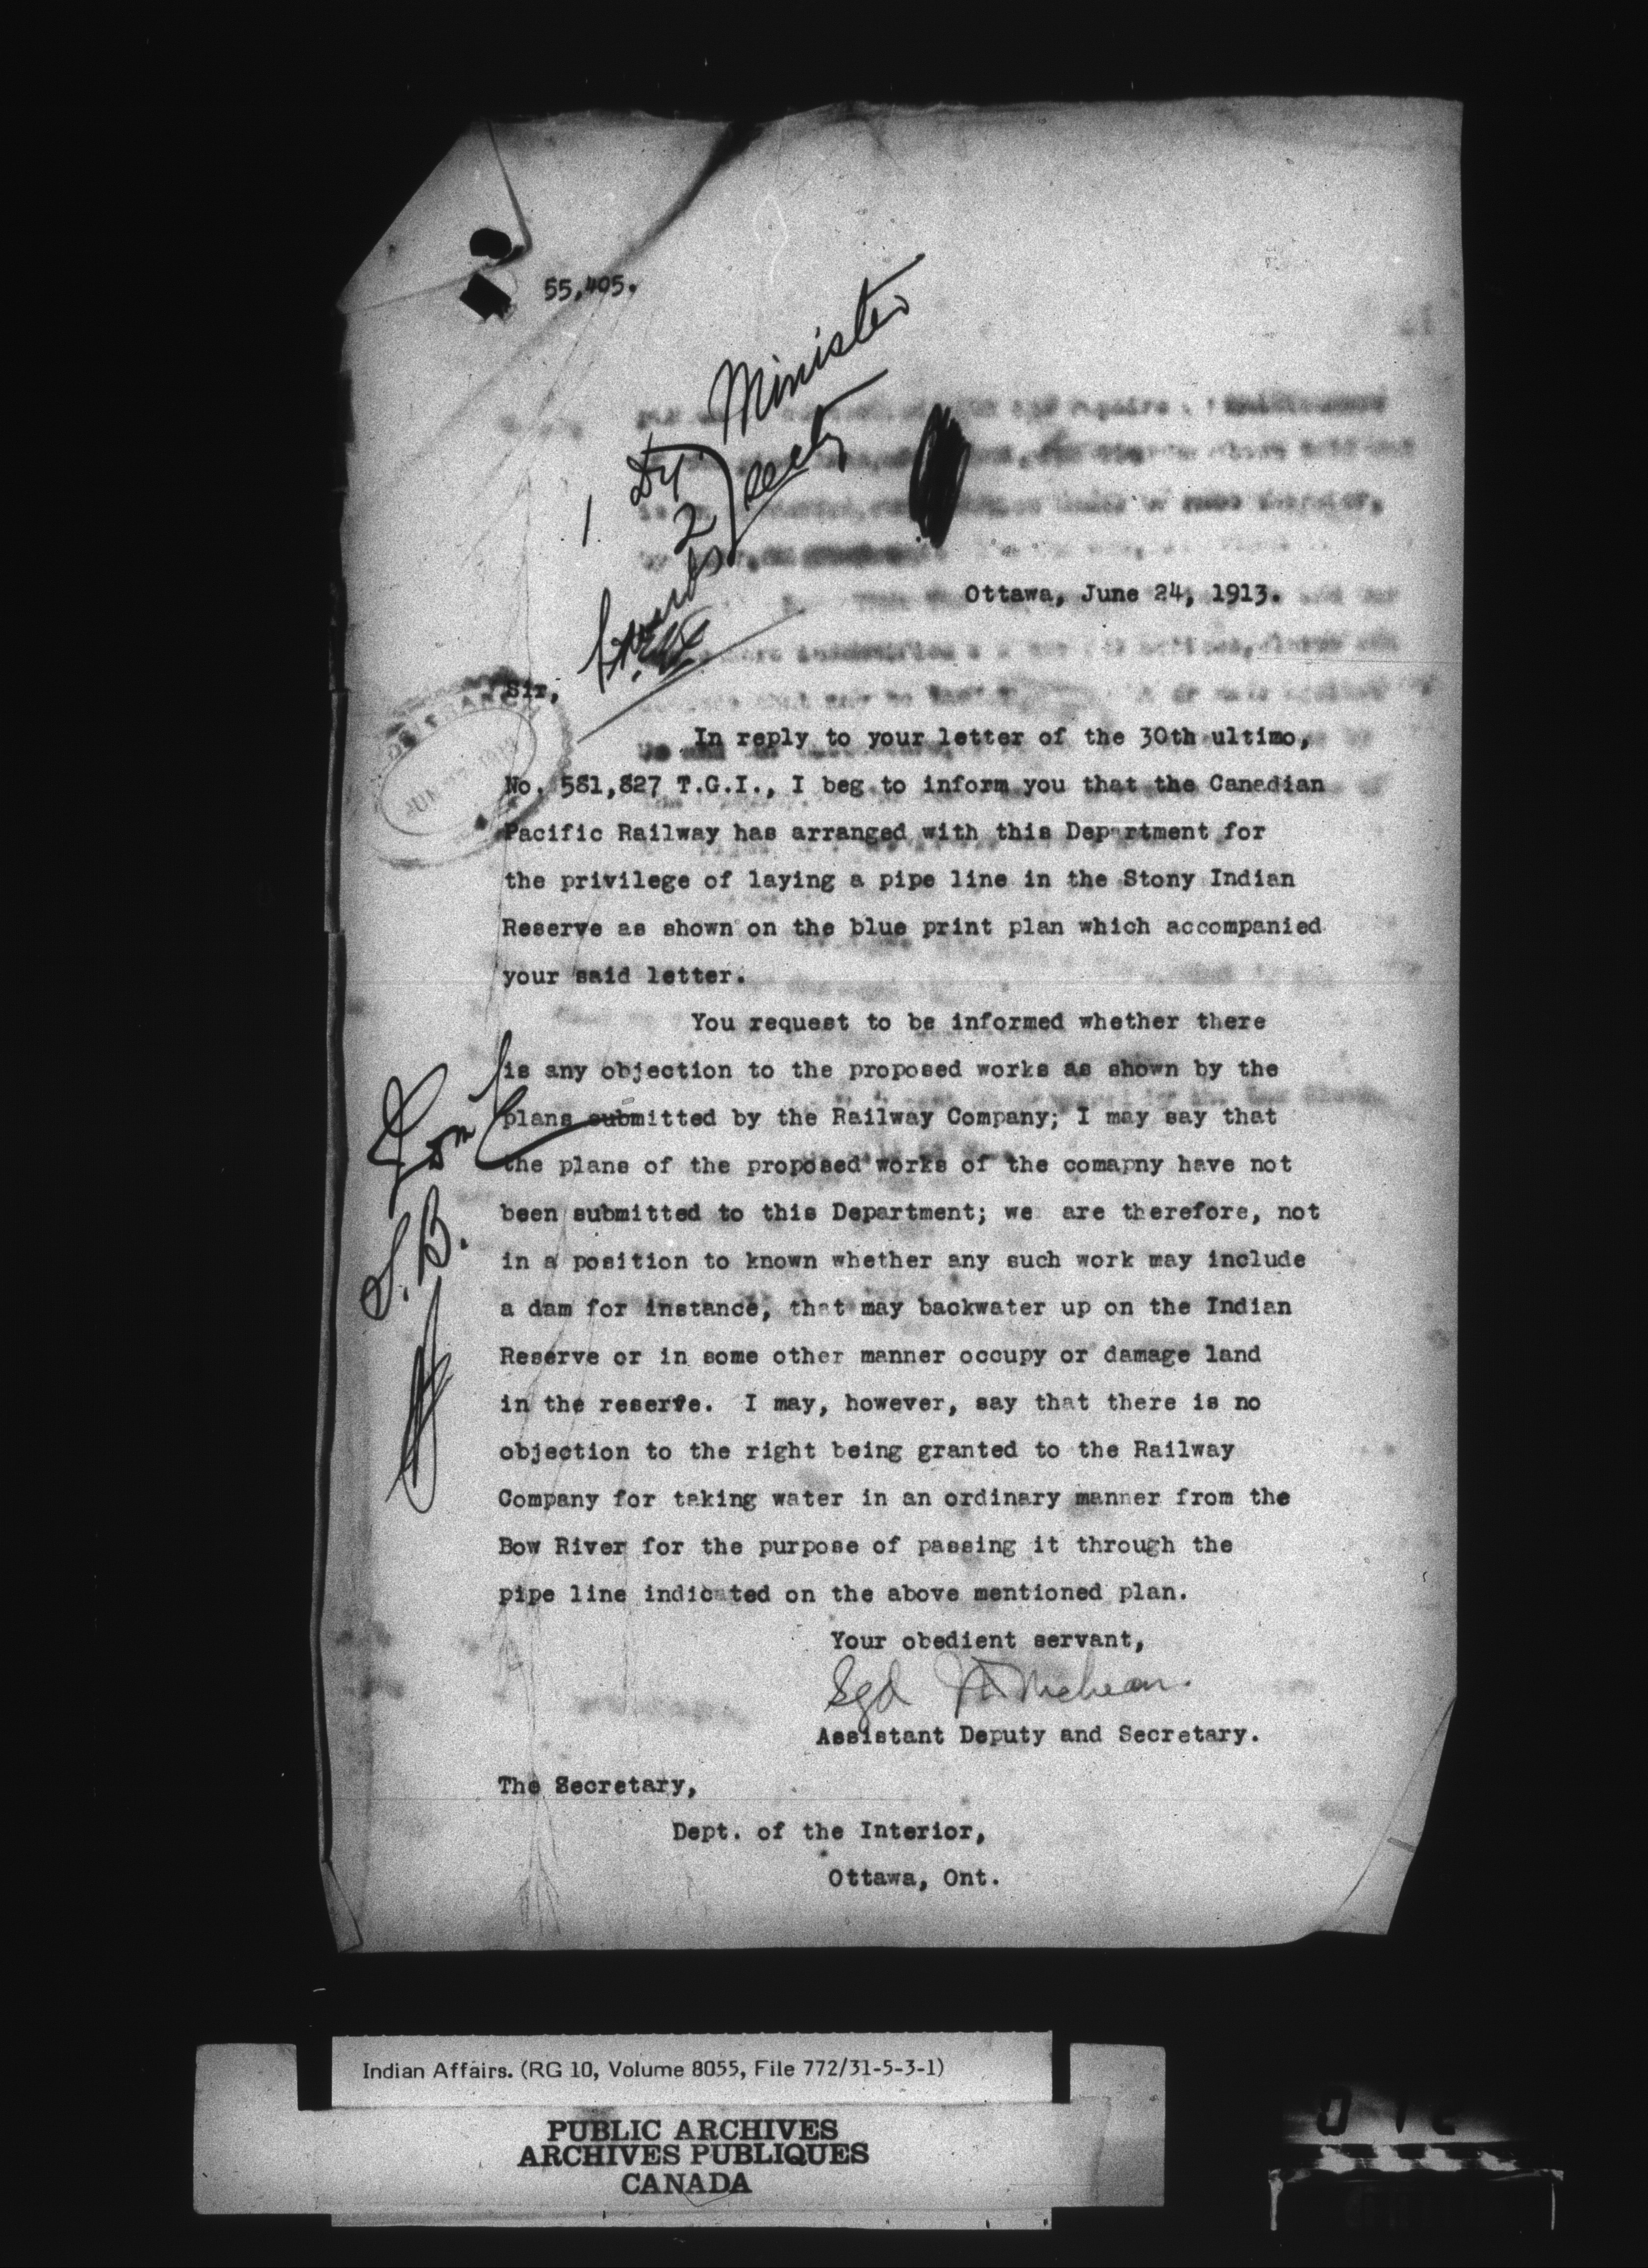 55,405.
Minister
1. Dy
2 Secty
Ottawa, June 24, 1913.
Sir,
In reply to your letter of the 30th ultimo,
No. 581,827 T.G.I., I beg to inform you that the Canadian
Pacific Railway has arranged with this Department for
the privilege of laying a pipe line in the Stony Indian
Reserve as shown on the blue print plan which accompanied
your said letter.
You request to be informed whether there
is any objection to the proposed works as shown by the
plans submitted by the Railway Company; I may say that
the plans of the proposed works of the comapny have not
been submitted to this Department; we are therefore, not
in a position to known whether any such work may include
a dam for instance, that may backwater up on the Indian
Reserve or in some other manner occupy or damage land
in the reserve. I may, however, say that there is no
objection to the right being granted to the Railway
Company for taking water in an ordinary manner from the
Bow River for the purpose of passing it through the
pipe line indicated on the above mentioned plan.
Your obedient servant,
Sgd McLean.
Assistant Deputy and Secretary.
The Secretary,
Dept. of the Interior,
Ottawa, Ont.
S.B.
Indian Affairs. (RG 10, Volume 8055, File 772/31-5-3-1)
PUBLIC ARCHIVES
ARCHIVES PUBLIQUES
CANADA